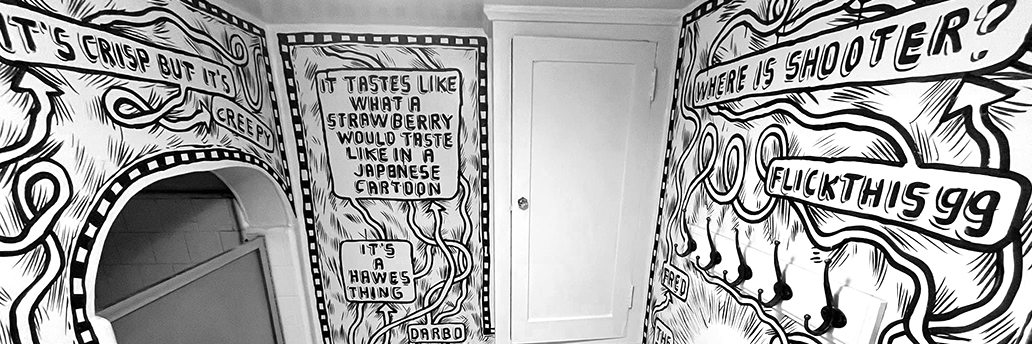 IT'S CRISP BUT IT'S
CREEPY
IT TASTES LIKE
WHAT A
STRAWBERRY
WOULD TASTE
LIKE IN A
JAPANESE
CARTOON
IT'S
A
HAWES
THING
DARBO
WHERE IS SHOOTER?
FLICKTHIS99
FRED
THE